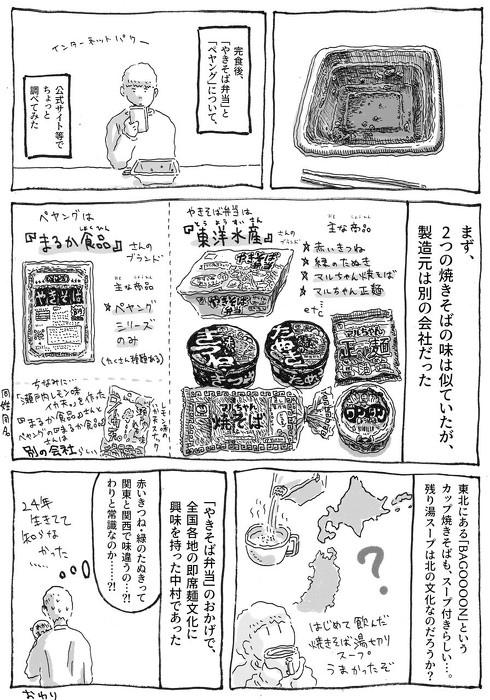 完食後、
「やきそば弁当」と
「ペヤング」について、
公式サイト等で
ちょっと
調べてみた
インターネットパワー
まず、
2つの焼きそばの味は似ていたが、
製造元は別の会社だった
やきそば弁当は
とうようすいさん
『東洋水産』さんの
ブランド
おも しょうひん
主な商品
★赤いきつね
★緑のたぬき
★マルちゃん焼そば
★マルちゃん正麺
etc
やきそば
弁当
やきそば
弁当
きつね
たぬき
マルちゃん
正麺
マルちゃん
焼そば
ワンタン
ペヤングは
しょくひん
『まるか食品』さんの
ブランド
おも しょうひん
主な商品
★ペヤング
シリーズ
のみ
(たくさん種類ある)
ペヤング
やきそば
ちなみに…
「瀬戸内レモン味
イカ天」を作った
まるか食品さんと
ペヤングのまるか食品
さんは
別の会社らしい
同姓同名
レモン味の
イカ天スナック
東北にある「BAGOOOON」という
カップ焼きそばも、スープ付きらしい…。
残り湯スープは北の文化なのだろうか?
?
はじめて飲んだ
焼きそば湯切り
スープ
うまかったぞ
「やきそば弁当」のおかげで、
全国各地の即席麺文化に
興味を持った中村であった
赤いきつね・緑のたぬきって
関東と関西で味違うの…?!
わりと常識なのか……?!
24年
生きてて
知らな
かった
……
おわり